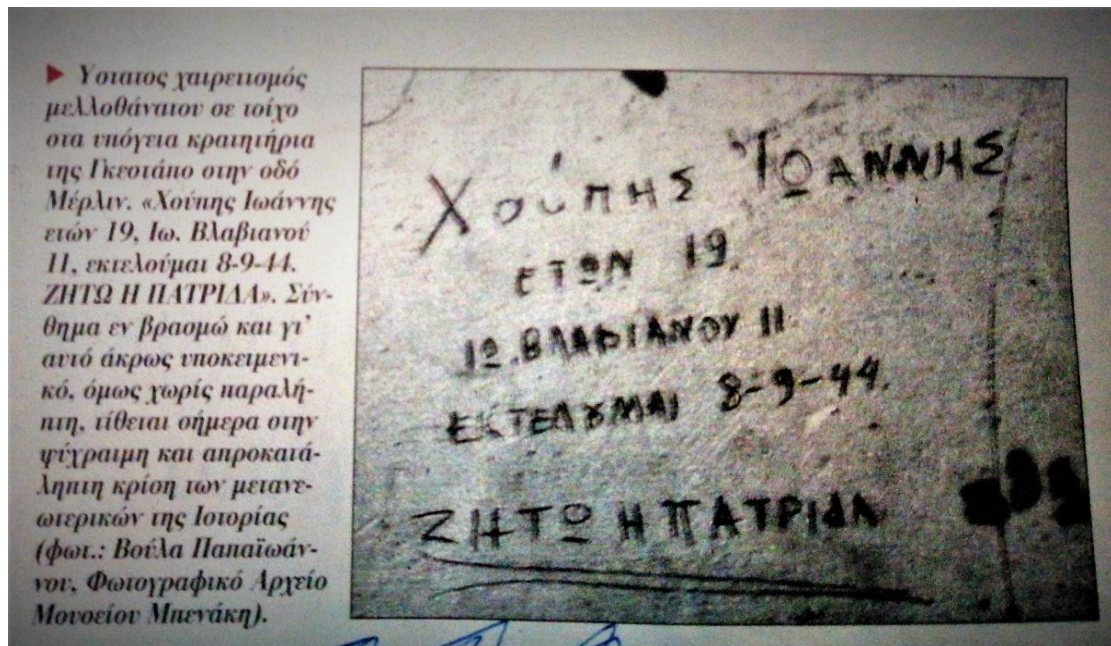 ▶ Ύστατος χαιρετισμός
μελλοθάνατου σε τοίχο
στα υπόγεια κρατητήρια
της Γκεστάπο στην οδό
Μέρλιν. «Χούπης Ιωάννης
ετών 19, Ιω. Βλαβιανού
11, εκτελούμαι 8-9-44.
ΖΗΤΩ Η ΠΑΤΡΙΔΑ». Σύν-
θημα εν βρασμώ και γι'
αυτό άκρως υποκειμενι-
κό, όμως χωρίς παραλή-
πτη, τίθεται σήμερα στην
ψύχραιμη και απροκατά-
ληπτη κρίση των μετανε-
ωτερικών της Ιστορίας
(φωτ.: Βούλα Παπαϊωάν-
νου, Φωτογραφικό Αρχείο
Μουσείου Μπενάκη).
Χούπης ἸΩΑΝΝΗΣ
ΕΤΩΝ 19.
ΙΩ.ΒΛΑΒΙΑΝΟΥ 11
ΕΚΤΕΛΟΥΜΑΙ 8-9-44.
ΖΗΤΩ Η ΠΑΤΡΙΔΑ